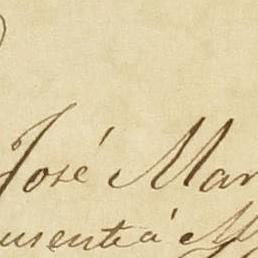 José Mar
usentiá M